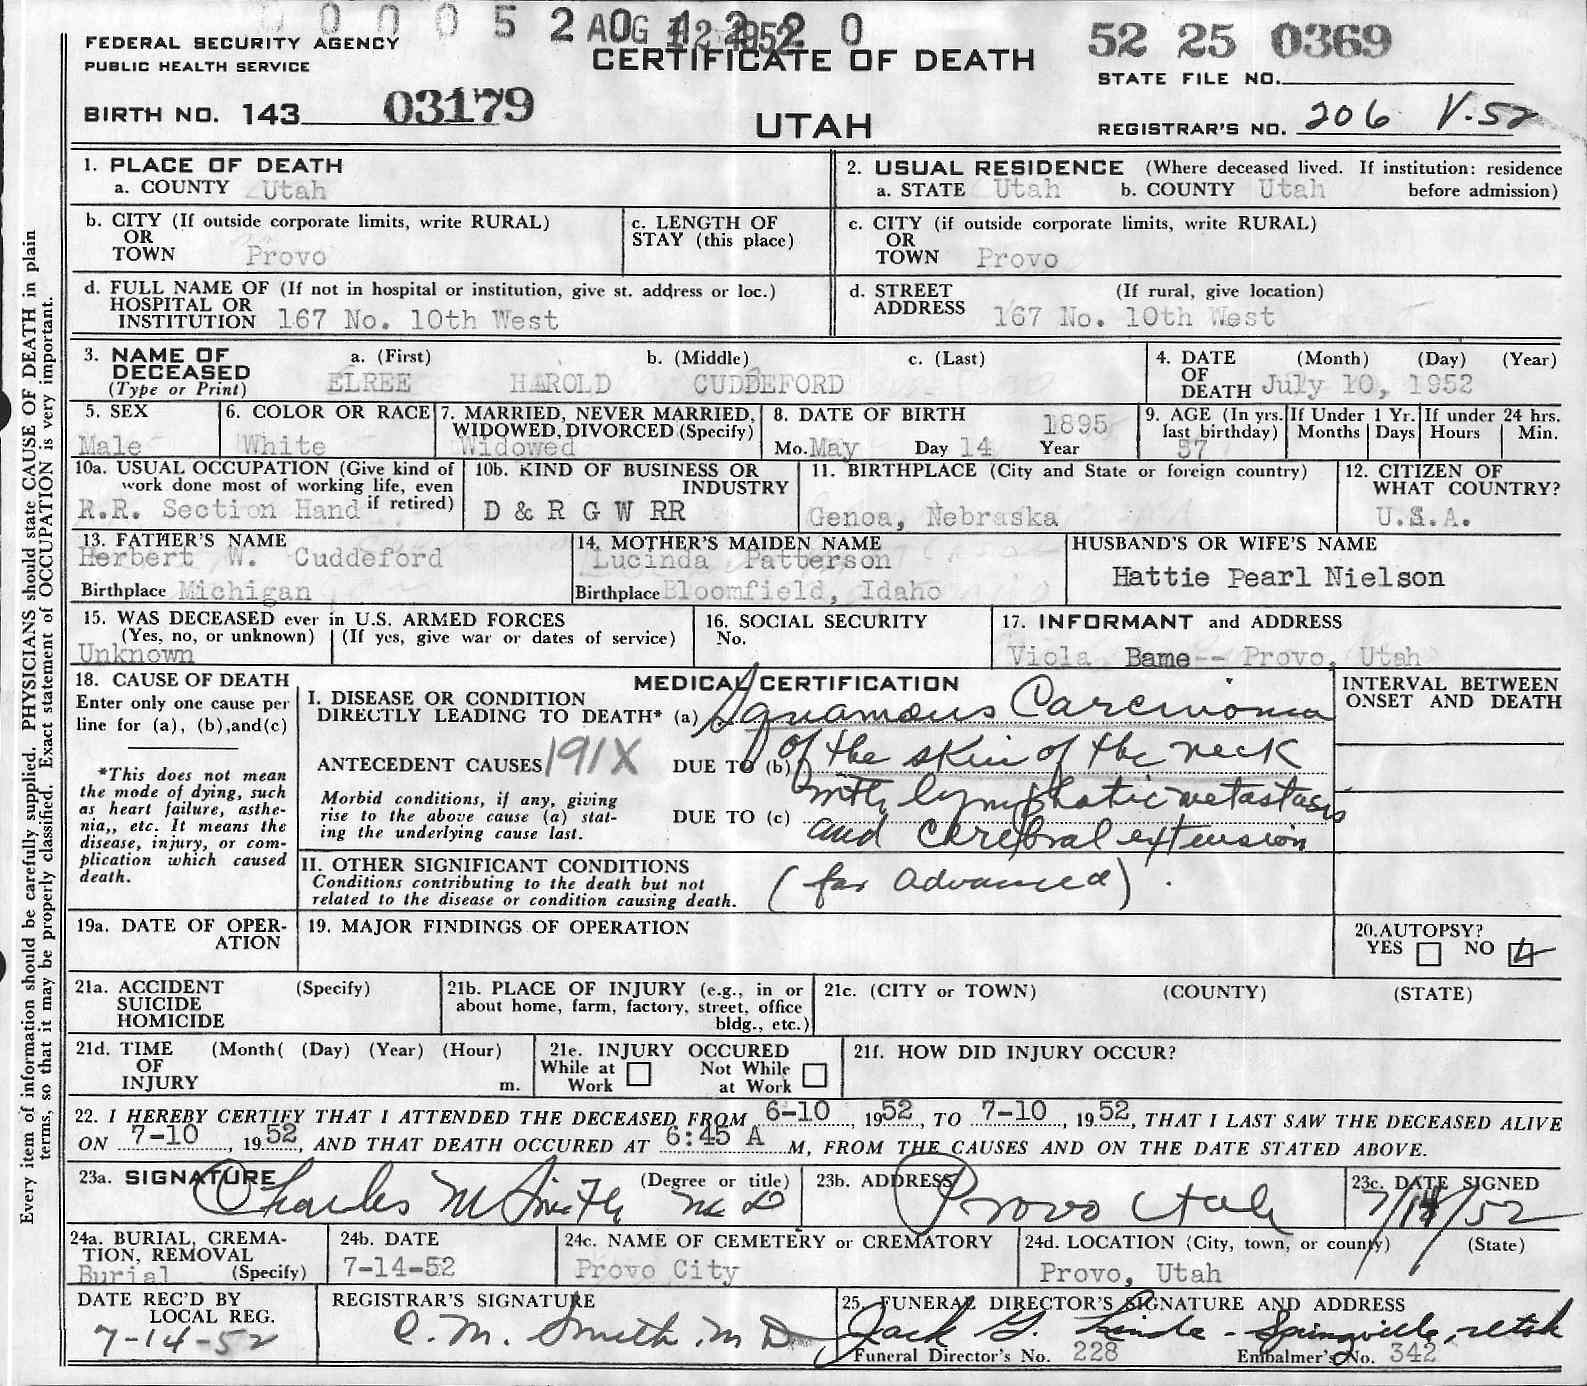 0 0 0 5 2 AUG 12 1952 2 0
52 25 0369
FEDERAL SECURITY AGENCY
PUBLIC HEALTH SERVICE
CERTIFICATE OF DEATH
STATE FILE NO.
BIRTH NO. 143 03179
UTAH
REGISTRAR'S NO. 206 V-52
Every item of information should be carefully supplied. PHYSICIANS should state CAUSE OF DEATH in plain
terms, so that it may be properly classified. Exact statement of OCCUPATION is very important.
1. PLACE OF DEATH
a. COUNTY Utah
2. USUAL RESIDENCE (Where deceased lived. If institution: residence
a. STATE Utah b. COUNTY Utah before admission)
b. CITY (If outside corporate limits, write RURAL)
OR
TOWN Provo
c. LENGTH OF
STAY (this place)
c. CITY (if outside corporate limits, write RURAL)
OR
TOWN Provo
d. FULL NAME OF (If not in hospital or institution, give st. address or loc.)
HOSPITAL OR
INSTITUTION 167 No. 10th West
d. STREET (If rural, give location)
ADDRESS 167 No. 10th West
3. NAME OF a. (First) b. (Middle) c. (Last)
DECEASED
(Type or Print) ELREE HAROLD CUDDEFORD
4. DATE (Month) (Day) (Year)
OF
DEATH July 10, 1952
5. SEX
Male
6. COLOR OR RACE
White
7. MARRIED, NEVER MARRIED,
WIDOWED, DIVORCED (Specify)
Widowed
8. DATE OF BIRTH 1895
Mo. May Day 14 Year
9. AGE (In yrs.
last birthday)
57
If Under 1 Yr.
Months Days
If under 24 hrs.
Hours Min.
10a. USUAL OCCUPATION (Give kind of
work done most of working life, even
if retired)
R.R. Section Hand
10b. KIND OF BUSINESS OR
INDUSTRY
D & R G W RR
11. BIRTHPLACE (City and State or foreign country)
Genoa, Nebraska
12. CITIZEN OF
WHAT COUNTRY?
U.S.A.
13. FATHER'S NAME
Herbert W. Cuddeford
Birthplace Michigan
14. MOTHER'S MAIDEN NAME
Lucinda Patterson
Birthplace Bloomfield, Idaho
HUSBAND'S OR WIFE'S NAME
Hattie Pearl Nielson
15. WAS DECEASED ever in U.S. ARMED FORCES
(Yes, no, or unknown) (If yes, give war or dates of service)
Unknown
16. SOCIAL SECURITY
No.
17. INFORMANT and ADDRESS
Viola Bame-- Provo, Utah
18. CAUSE OF DEATH
Enter only one cause per
line for (a), (b), and (c)
*This does not mean
the mode of dying, such
as heart failure, asthe-
nia,, etc. It means the
disease, injury, or com-
plication which caused
death.
MEDICAL CERTIFICATION
I. DISEASE OR CONDITION
DIRECTLY LEADING TO DEATH* (a) Squamous Carcinoma
ANTECEDENT CAUSES 191X DUE TO (b) of the skin of the neck
Morbid conditions, if any, giving
rise to the above cause (a) stat-
ing the underlying cause last.
with lymphatic metastasis
DUE TO (c) and cerebral extension
II. OTHER SIGNIFICANT CONDITIONS
Conditions contributing to the death but not
related to the disease or condition causing death.
(far advanced).
INTERVAL BETWEEN
ONSET AND DEATH
19a. DATE OF OPER-
ATION
19. MAJOR FINDINGS OF OPERATION
20. AUTOPSY?
YES NO
21a. ACCIDENT (Specify)
SUICIDE
HOMICIDE
21b. PLACE OF INJURY (e.g., in or
about home, farm, factory, street, office
bldg., etc.)
21c. (CITY or TOWN) (COUNTY) (STATE)
21d. TIME (Month( (Day) (Year) (Hour)
OF
INJURY m.
21e. INJURY OCCURED
While at Not While
Work at Work
21f. HOW DID INJURY OCCUR?
22. I HEREBY CERTIFY THAT I ATTENDED THE DECEASED FROM 6-10, 1952, TO 7-10, 1952, THAT I LAST SAW THE DECEASED ALIVE
ON 7-10, 1952, AND THAT DEATH OCCURED AT 6:45 A M, FROM THE CAUSES AND ON THE DATE STATED ABOVE.
23a. SIGNATURE (Degree or title)
Charles M Smith M D
23b. ADDRESS
Provo Utah
23c. DATE SIGNED
7/14/52
24a. BURIAL, CREMA-
TION, REMOVAL
Burial (Specify)
24b. DATE
7-14-52
24c. NAME OF CEMETERY or CREMATORY
Provo City
24d. LOCATION (City, town, or county) (State)
Provo, Utah
DATE REC'D BY
LOCAL REG.
7-14-52
REGISTRAR'S SIGNATURE
C. M. Smith M D
25. FUNERAL DIRECTOR'S SIGNATURE AND ADDRESS
Jack G. - Springville, Utah
Funeral Director's No. 228 Embalmer's No. 342